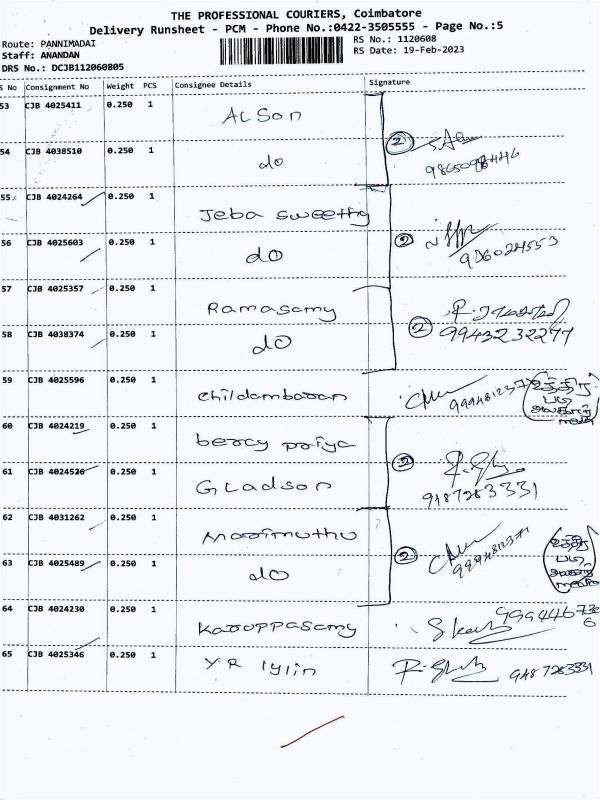 THE PROFESSIONAL COURIERS, Coimbatore
Delivery Runsheet - PCM - Phone No.:0422-3505555 - Page No.:5
Route: PANNIMADAI
RS No.: 1120608
Staff: ANANDAN
RS Date: 19-Feb-2023
DRS No.: DCJB112060805
S No Consignment No Weight PCS Consignee Details Signature
53 CJB 4025411 0.250 1 ALSon
54 CJB 4038510 0.250 1 do 2
55 CJB 4024264 0.250 1 Jeba sweethy
56 CJB 4025603 0.250 1 do 2 9360284553
57 CJB 4025357 0.250 1 Ramasamy
58 CJB 4038374 0.250 1 do 2 9943232277
59 CJB 4025596 0.250 1 Childambaran
60 CJB 4024219 0.250 1 bercy priya
61 CJB 4024526 0.250 1 GLadson 2 9487283331
62 CJB 4031262 0.250 1 Marimuthu
63 CJB 4025489 0.250 1 do 2
64 CJB 4024230 0.250 1 Karuppasamy
65 CJB 4025346 0.250 1 YR Iylin 9487283331